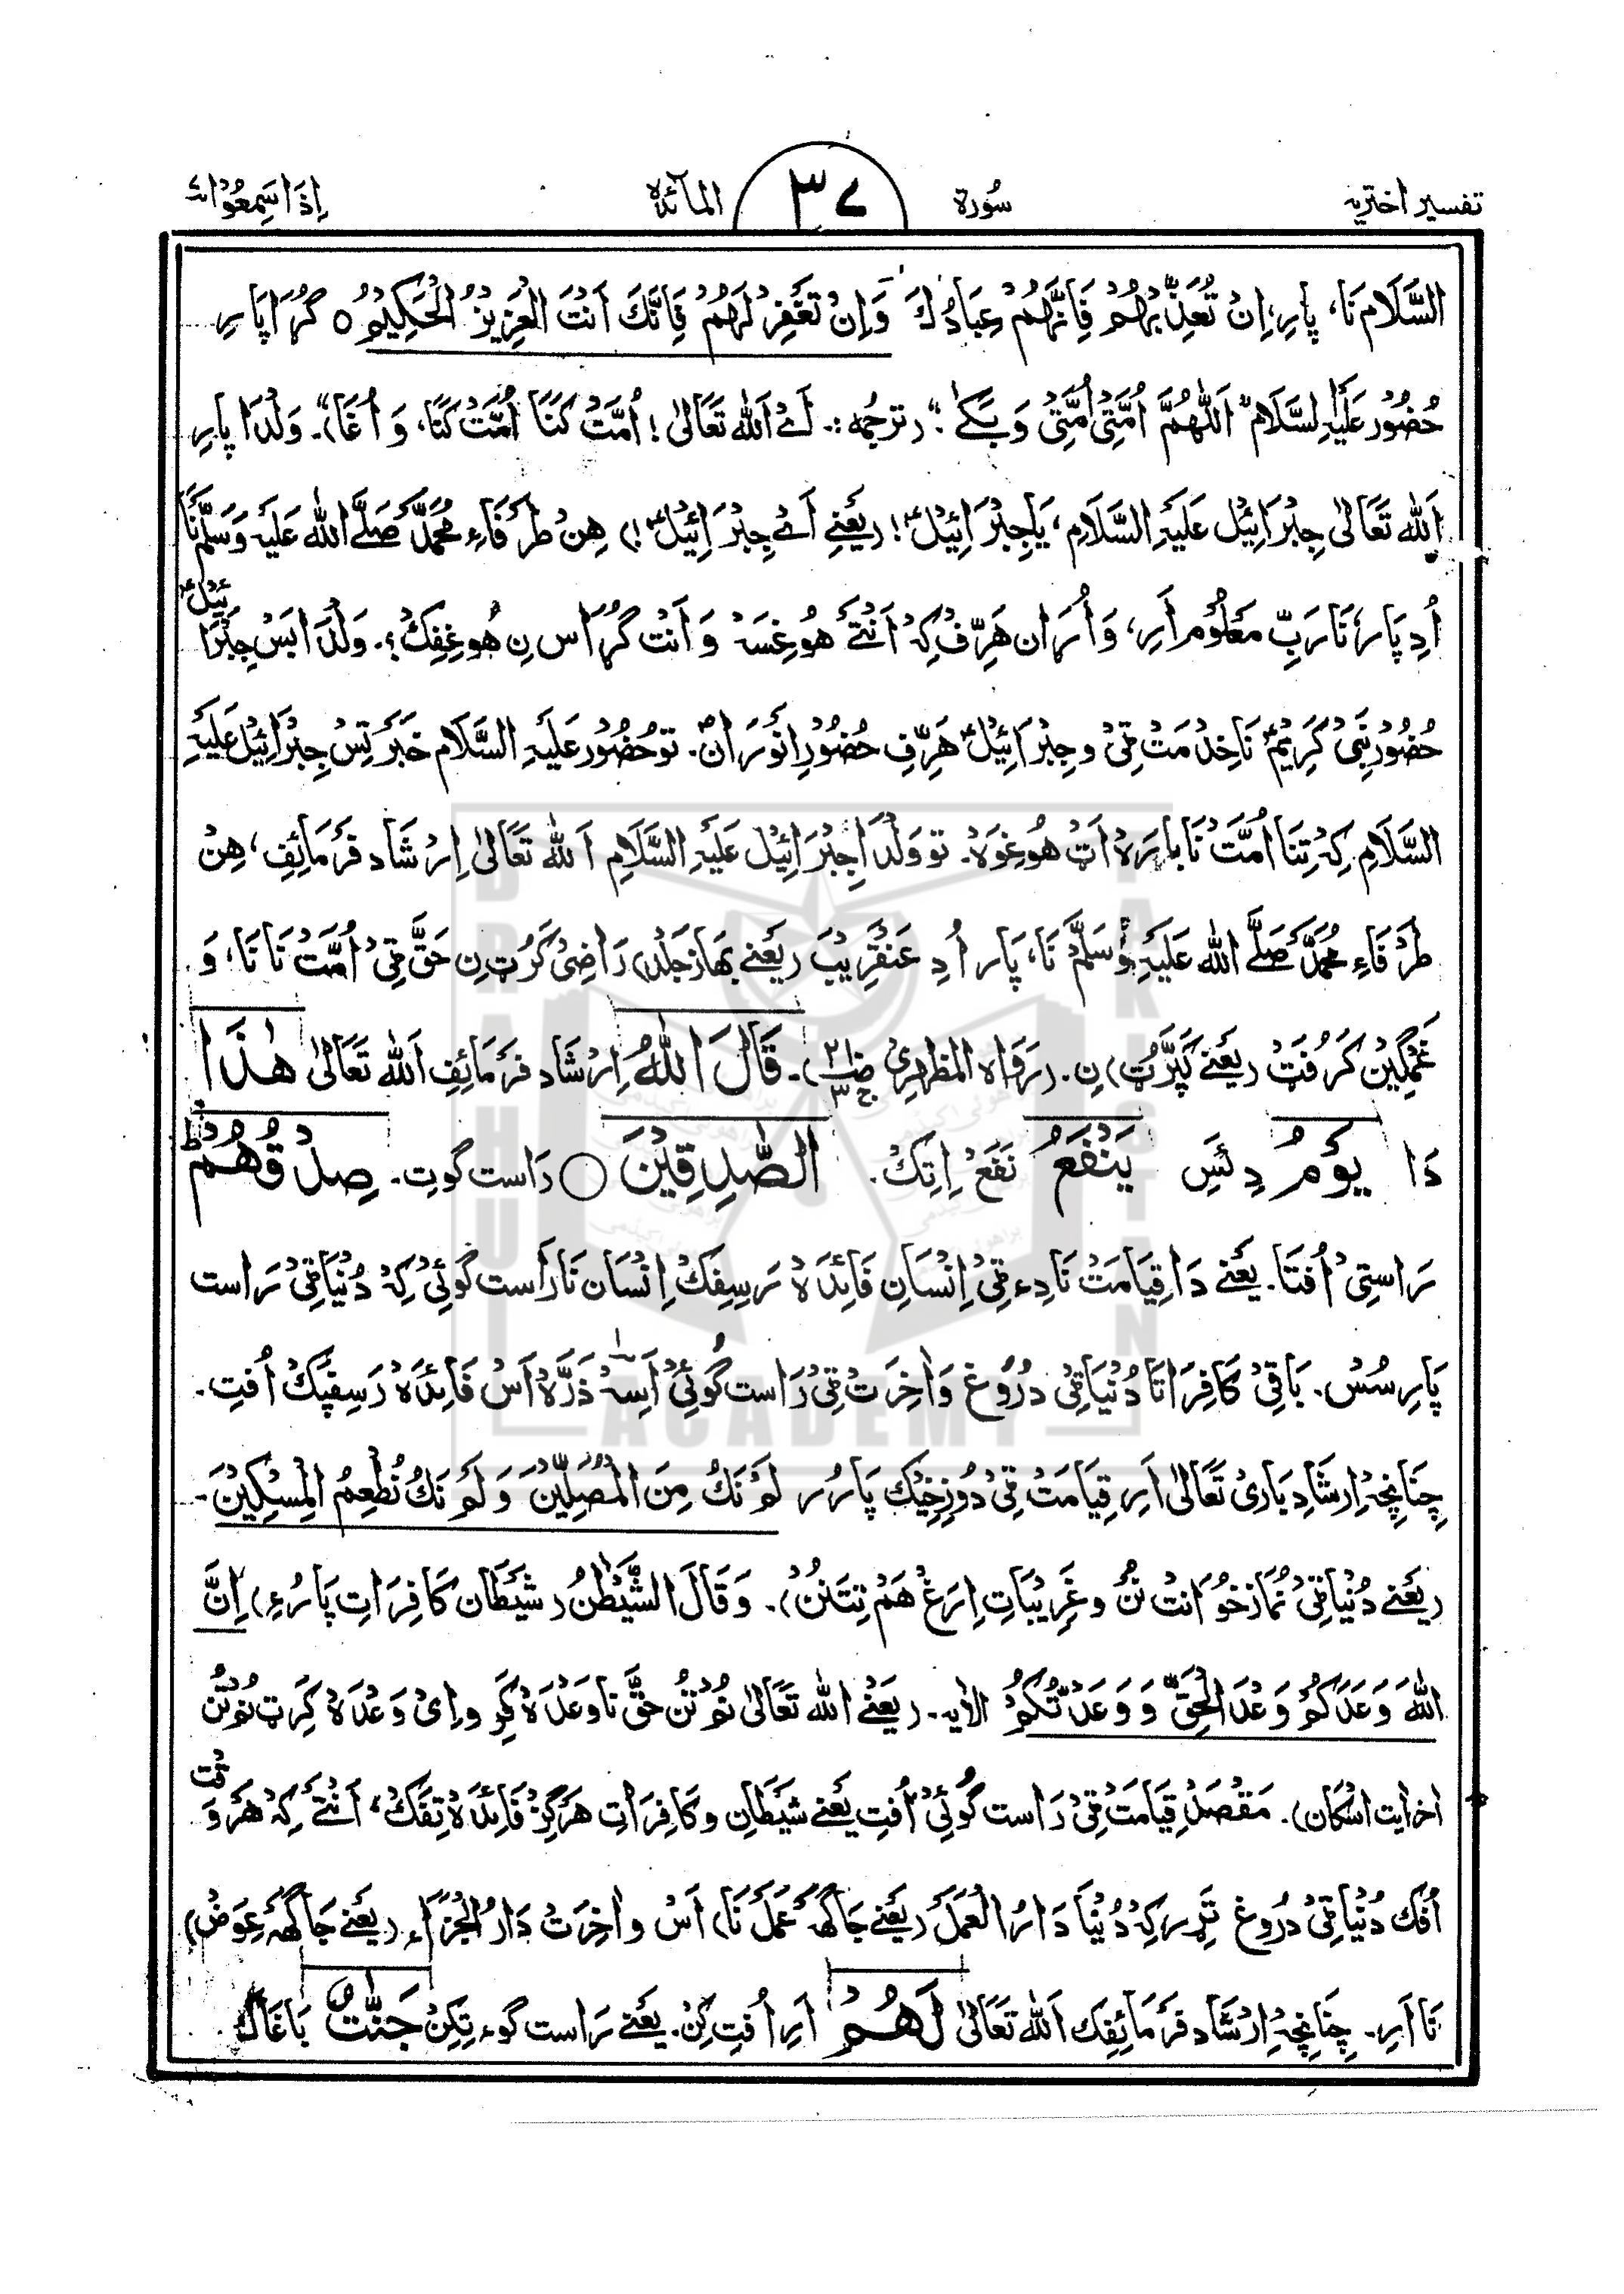 تفسیر اختریہ سُورة ٣٧ المآئدة اِذَا سَمِعُوْا ٧
السَّلَام نَا، پارِ، اِنْ تُعَذِّبْهُمْ فَاِنَّهُمْ عِبَادُكَ وَاِنْ تَغْفِرْ لَهُمْ فَاِنَّكَ اَنْتَ الْعَزِیْزُ الْحَكِیْمُ ○ گُڑَا پَارِ
حُضُوْر عَلَیْہِ لسَّلَام "اَللّٰهُمَّ اُمَّتِیْ اُمَّتِیْ وَبَكٰی"؛ (ترجُمہ :۔ اَے اَللّٰه تَعَالٰی! اُمَّتْ كَنَا اُمَّتْ كَنَا، وَ اُغَا)۔ وَلْدَا پارِ
اَللّٰه تَعَالٰی جِبْرَائِیْل عَلَیْہِ السَّلَامِ، یَاجِبْرَائِیْلؑ! (یَعْنِے اَے جِبْرَائِیْلؑ!) هِنْ طَرْفَاءِ مُحَمَّدْ صَلَّے اللّٰه عَلَیْہ وَسَلَّمْ نَا
اُدِ پَار نَا رَبِّ مَعْلُوْم اَرِ، وَ اُرَان هَرِّفْ كِہ اَنْتَےْ هُوغِسَہْ وَ اَنْت گُڑَاس نِ هُوغِفِكْ؟۔ وَلْدَا بَسْ جِبْرَائِیْلؑ
حُضُوْر نَبِیْ كَرِیْمؐ نَا خِدْمَتْ ٹِیْ وجِبْرَائِیْلؑ هَرِّفِ حُضُوْرِ انْوَرانؐ۔ تو حُضُوْر عَلَیْہِ السَّلَام خَبَرْ تِسْ جِبْرَائِیْل عَلَیْہِ
السَّلَامِ كِہْ تِنَا اُمَّتْ نَا بارَہ اَٹ هُوغِوَہْ۔ تو وَلْدَا جِبْرَائِیْل عَلَیْہِ السَّلَامِ اَللّٰه تَعَالٰی اِرْشَاد فَرْمَائِفِ، هِنْ
طَرْفَاءِ مُحَمَّدْ صَلَّے اللّٰه عَلَیْہِ وَسَلَّمْ نَا، پَار اُدِ عَنْقَرِیْبْ (یَعْنے بَهَازْ جَلْد) رَاضِیْ كَرُٹ نِ حَقّ ٹِیْ اُمَّتْ نَا نَا، وَ
غَمْگِیْن كَرُفَٹ (یَعْنے كَپَّرُٹ) نِ۔ (رَوَاہ المظهری)۔ قَالَ اللّٰهُ اِرْشَاد فَرْمَائِفِ اَللّٰه تَعَالٰی هٰذَا
دَا یَوْمُ دِئسِ یَنْفَعُ نَفَعْ اِتِكْ۔ الصّٰدِقِیْنَ ○ رَاست گوتِ۔ صِدْقُهُمْ ؕ
رَاستِیْ اُفتَا۔ یَعْنے دَا قِیَامَتْ نَا دِء ٹِیْ اِنْسَانِ فَائِدَہ رَسِفِكْ اِنْسَان نَا رَاست گُوئِیْ كِہْ دُنْیَا ٹِیْ رَاست
پَارِسُسْ۔ بَاقِیْ كَافِرَاتَا دُنْیَا ٹِیْ دُرُوْغ وَاٰخِرَتْ ٹِیْ رَاست گُوئِیْ اَسِہْ ذَرَّہْ اَسْ فَائِدَہْ رَسِفِپَكْ اُفتِ۔
چِنَانِچہ اِرْشَادِ بَارِیْ تَعَالٰی اَرِ قِیَامَتْ ٹِیْ دُوْزِخِیْك پَارُر لَمْ نَكُ مِنَ الْمُصَلِّیْنَ وَلَمْ نَكُ نُطْعِمُ الْمِسْكِیْنَ۔
(یَعْنے دُنْیَا ٹِیْ نُمَازْ خُوَانْت نَنُ وغَرِیْبَاتِ اِرَغْ هَمْ تِتَنُنْ)۔ وَقَالَ الشَّیْطٰنُ (شَیْطَان كَافِرَاتِ پَارُءِ) اِنَّ
اللّٰهَ وَعَدَكُمْ وَعْدَ الْحَقِّ وَوَعَدْتُّكُمْ الایہ۔ (یَعْنے اللّٰه تَعَالٰی نُمْ تُنْ حَقّ نَا وَعْدَہْ كَرِ و اِیْ وَعْدَہْ كَرِٹ نُمْ تُنْ
مَقْصَدْ قِیَامَتْ ٹِیْ رَاست گُوئِیْ اُفتِ یَعْنے شَیْطَانِ و كَافِرَاتِ هَرْگِزْ فَائِدَہ تِفَكْ، اَنْتَےْ كِہْ هَرْوَقْت
اُفْك دُنْیَا ٹِیْ دُرُوغ تَرِر كِہْ دُنْیَا دَارُ الْعَمَلْ (یَعْنے جَاگَہ عَمَلْ نَا) اَسْ و اٰخِرَتْ دَارُ الْجَزَاء (یَعْنے جَاگَہ عِوَضْ)
نَا اَرِ۔ چِنَانِچہ اِرْشَاد فَرْمَائِفِك اَللّٰه تَعَالٰی لَهُمْ اَرِ اُفتِ كِنْ۔ یَعْنے رَاست گوءِ تِكِنْ جَنّٰتٌ بَاغَاك
BRAHUI ACADEMY PAKISTAN